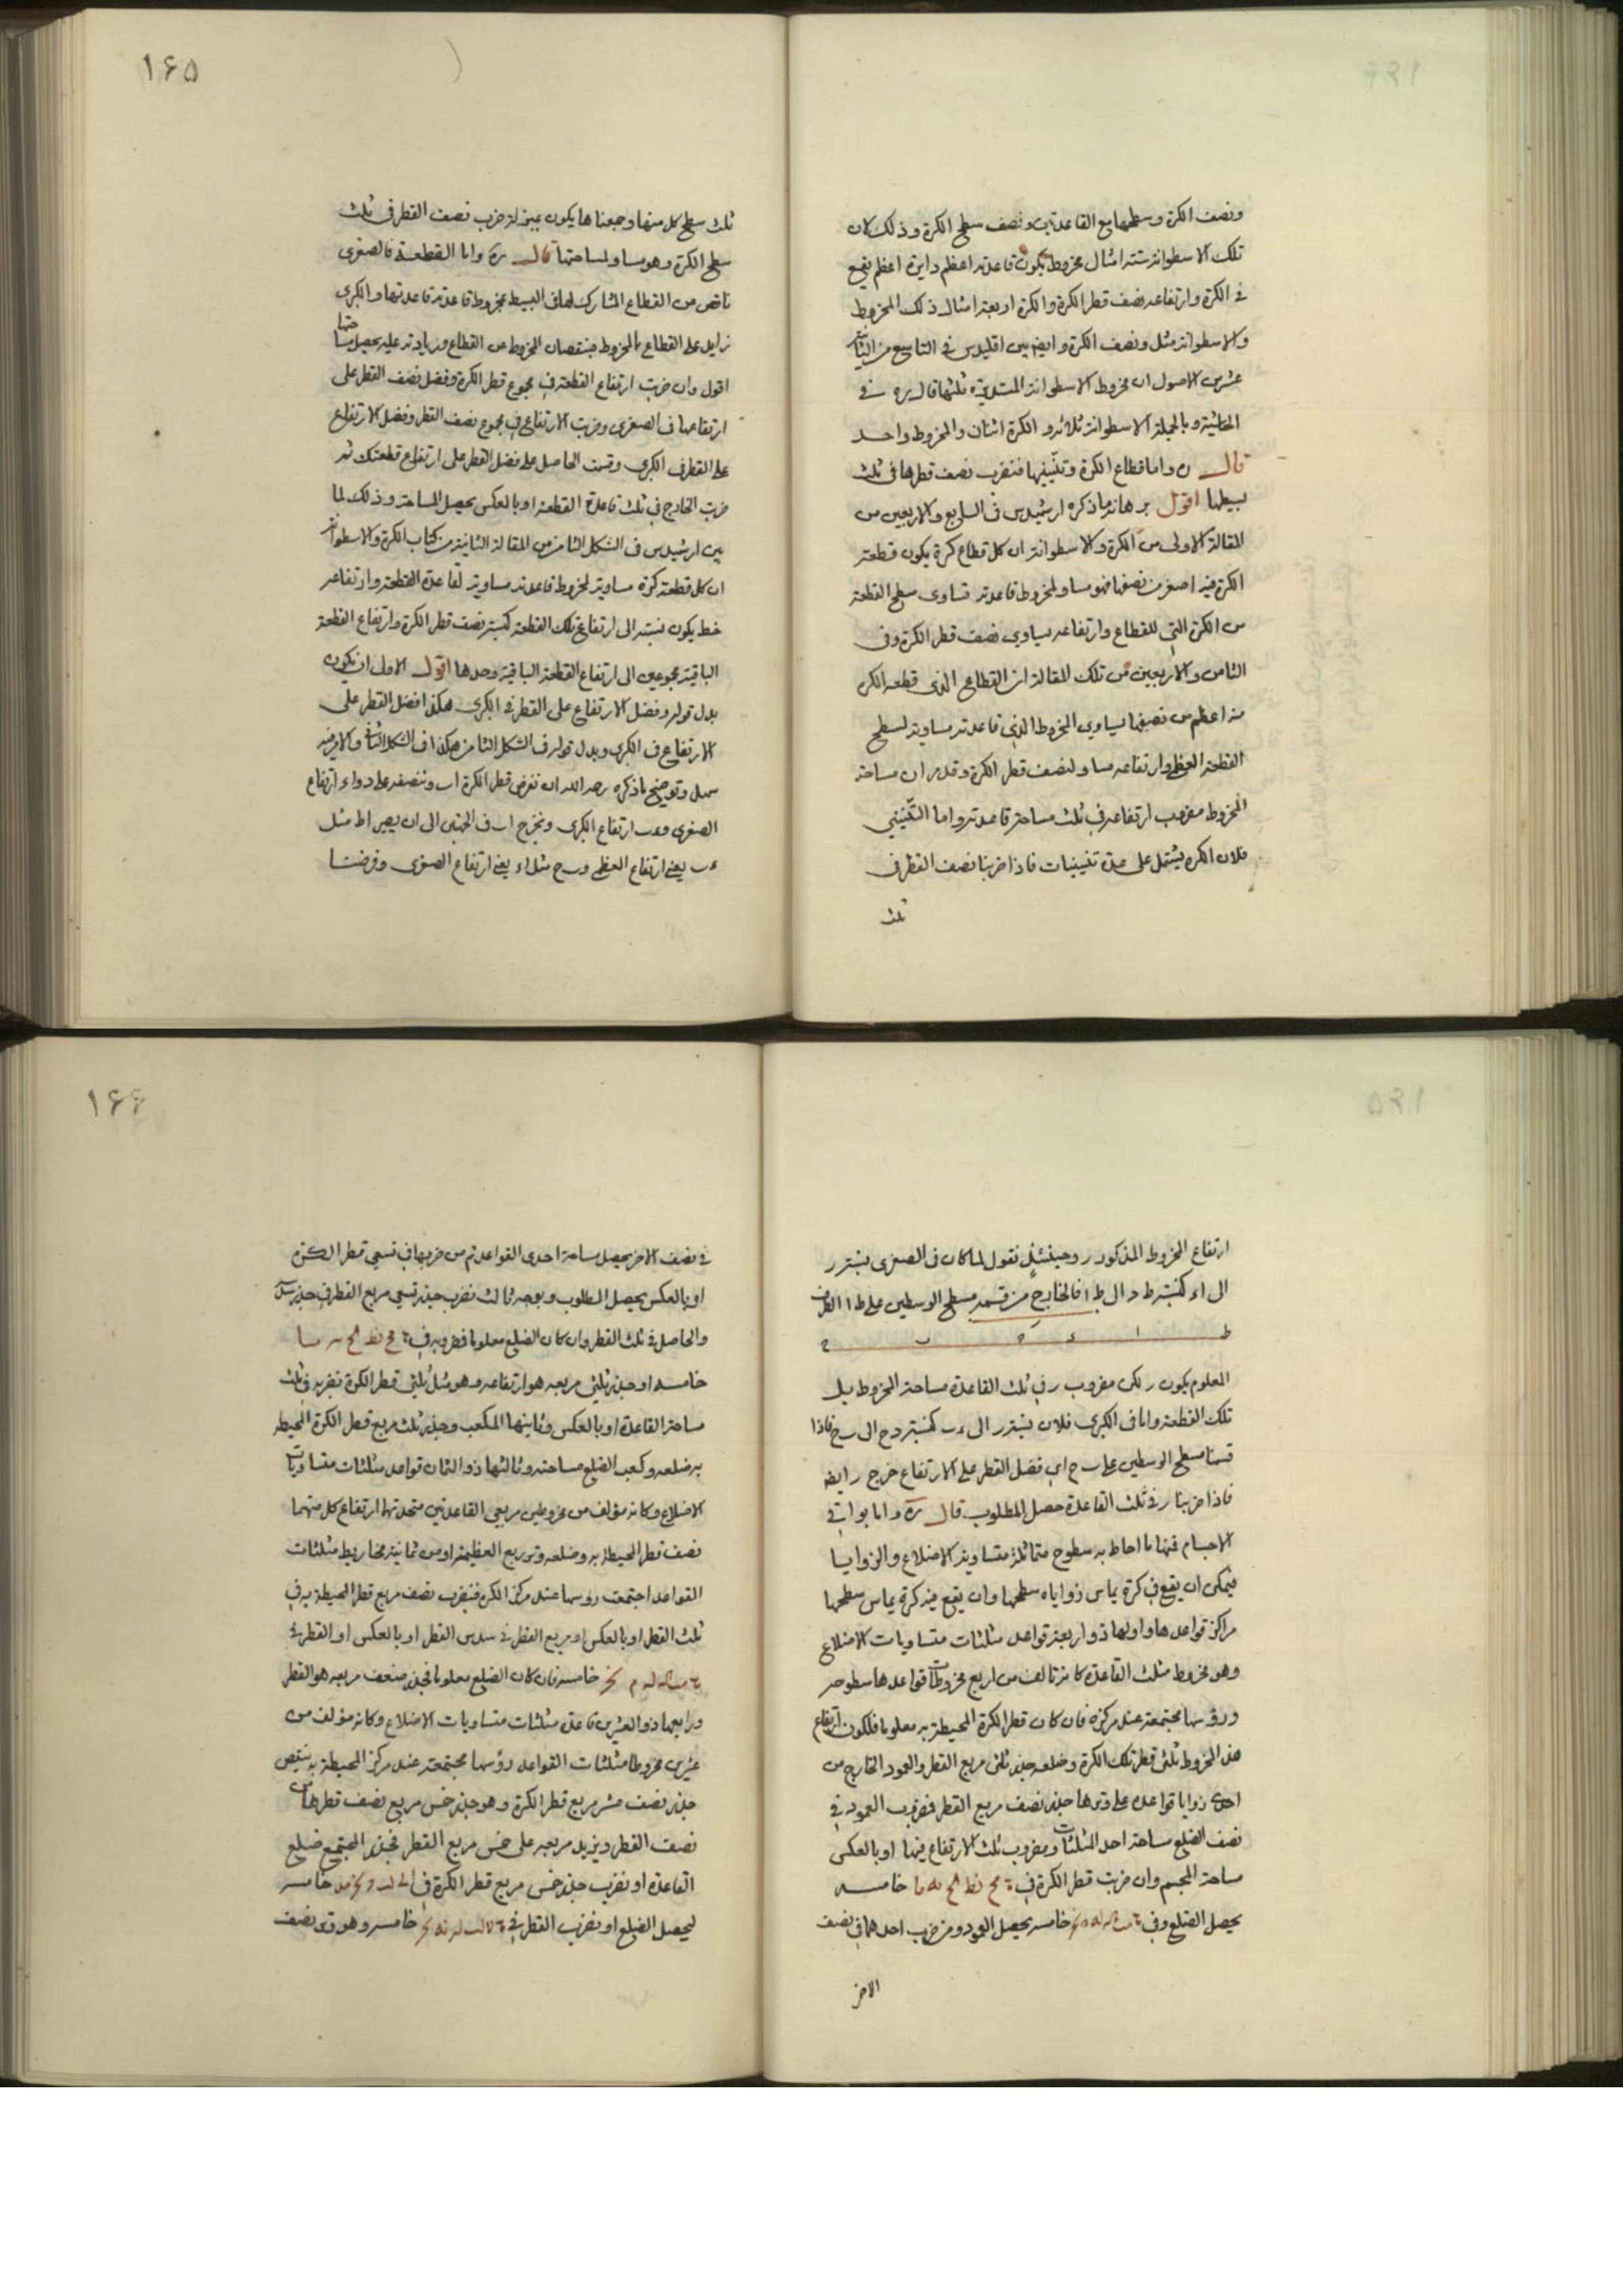 ونصف الكرة وسطحها مع القاعدتين ونصف سطح الكرة وذلك لان
تلك الاسطوانة ستة امثال مخروط يكون قاعدته اعظم دايرة اعظم يقع
في الكرة وارتفاعه نصف قطر الكرة والكرة اربعة امثال ذلك المخروط
والاسطوانة مثل ونصف الكرة وايضا بين اقليدس في التاسع من الثانية
عشر من الاصول ان مخروط الاسطوانة المستديرة ثلثها قال ره في
الحاشية وبالجملة الاسطوانة ثلاثة والكرة اثنان والمخروط واحد
قال ره واما قطاع الكرة وتنينيها فنضرب نصف قطرها في ثلث
بسيطها اقول برهانه ما ذكره ارشميدس في السابع والاربعين من
المقالة الاولى من الكرة والاسطوانة ان كل قطاع كرة يكون قطعة
الكرة فيه اصغر من نصفها فهو مساو لمخروط قاعدته تساوى سطح القطعة
من الكرة التي للقطاع وارتفاعه يساوي نصف قطر الكرة وفى
الثامن والاربعين من تلك المقالة ان القطاع الذى قطعه الكرة
منه اعظم من نصفها يساوي المخروط الذي قاعدته مساوية لسطح
القطعة العظمى وارتفاعه مساو لنصف قطر الكرة وقد مر ان مساحة
المخروط مضروب ارتفاعه في ثلث مساحة قاعدته واما التنيني
فلان الكرة يشتمل على عدة تنينيات فاذا ضربنا نصف القطر في
ثلث
١۶۵
ثلث سطح كل منها وجمعناها يكون بمنزلة ضرب نصف القطر في ثلث
سطح الكرة وهو مساو لمساحتها قال ره واما القطعة فالصغرى
ناقص من القطاع المشارك لها في البسيط بمخروط قاعدته قاعدتها والكبرى
زايد على القطاع بالمخروط فبنقصان المخروط من القطاع وزيادته عليه يحصل مساحتها
اقول وان ضربت ارتفاع القطعة في مجموع قطر الكرة وفضل نصف القطر على
ارتفاعها في الصغرى وضربت الارتفاع في مجموع نصف القطر وفضل الارتفاع
على القطر في الكبرى وقسمت الحاصل على فضل القطر على ارتفاع قطعتك ثم
ضربت الخارج في ثلث قاعدة القطعة او بالعكس يحصل المساحة وذلك لما
بين ارشميدس في الشكل الثامن من المقالة الثانية من كتاب الكرة والاسطوانة
ان كل قطعة كرة مساوية لمخروط قاعدته مساوية لقاعدة القطعة وارتفاعه
خط يكون نسبته الى ارتفاع تلك القطعة كنسبة نصف قطر الكرة وارتفاع القطعة
الباقية مجموعين الى ارتفاع القطعة الباقية وحدها اقول الاولى ان يكون
بدل قوله وفضل الارتفاع على القطر في الكبرى هكذا فضل القطر على
الارتفاع في الكبرى وبدل قوله في الشكل الثامن هكذا في الشكل الثاني والامر فيه
سهل وتوضيح ما ذكره رحمه الله ان نفرض قطر الكرة اب وننصفه على د واء ارتفاع
الصغرى وءب ارتفاع الكبرى ونخرج اب في الجهتين الى ان يصير اط مثل
ءب يعنى ارتفاع العظمى وب ح مثل اء يعنى ارتفاع الصغرى وفرضنا
ارتفاع المخروط المذكور ر وحينئذ نقول لما كان في الصغرى نسبة ر
الى اء كنسبة ط د الى ط ا فالخارج من قسمة مسطح الوسطين على ط ا الطرف
ط ا ء د ب ح
المعلوم يكون ر لكن مضروب ر في ثلث القاعدة مساحة المخروط بل
تلك القطعة واما في الكبرى فلان نسبة ر الى ءب كنسبة د ح الى ب ح فاذا
قسمنا مسطح الوسطين على ب ح اي فضل القطر على الارتفاع خرج ر ايضا
فاذا ضربنا ر في ثلث القاعدة حصل المطلوب قال ره واما بواقي
الاجسام فمنها ما احاط به سطوح متماثلة متساوية الاضلاع والزوايا
فيمكن ان يقع في كرة يماس زواياه سطحها وان يقع فيه كرة يماس سطحها
مراكز قواعدها واولها ذو اربعة قواعد مثلثات متساويات الاضلاع
وهو مخروط مثلث القاعدة كانه تألف من اربع مخروطات قواعدها سطوحه
ورؤسها مجتمعة عند مركزه فان كان قطر الكرة المحيطة به معلوما فلكون ارتفاع
هذا المخروط ثلثي قطر تلك الكرة وضلعه جذر ثلثي مربع القطر والعمود الخارج من
احدى زوايا قواعده على وترها جذر نصف مربع القطر فضرب العمود في
نصف الضلع مساحة احد المثلثات ومضروب ثلث الارتفاع فيها او بالعكس
مساحة المجسم وان ضربت قطر الكرة في خامسه
يحصل الضلع وفى خامسه يحصل العمود ومن ضرب احدهما في نصف
الاخر
١۶۶
في نصف الاخر يحصل مساحة احدى القواعد ثم من ضربها في تسعي قطر الكرة
او بالعكس يحصل المطلوب وبوجه ثالث نضرب جذر تسعي مربع القطر في جذر
والحاصل في ثلث القطر وان كان الضلع معلوما فضروبه في
خامسه او جذر ثلثي مربعه هو ارتفاعه وهو مثل ثلثي قطر الكرة نضربه في ثلث
مساحة القاعدة او بالعكس وثانيها المكعب وجذر ثلث مربع قطر الكرة المحيطة
به ضلعه وكعب الضلع مساحته وثالثها ذو الثمان قواعد مثلثات متساويات
الاضلاع وكانه مؤلف من مخروطين مربعي القاعدتين متحدتها ارتفاع كل منهما
نصف قطر المحيطة به وضلعه وتر ربع العظيمة او من ثمانية مخاريط مثلثات
القواعد اجتمعت رؤسها عند مركز الكرة فنضرب نصف مربع قطر المحيطة به في
ثلث القطر او بالعكس او مربع القطر في سدس القطر او بالعكس او القطر في
خامسه فان كان الضلع معلوما فجذر ضعف مربعه هو القطر
ورابعها ذو العشرين قاعدة مثلثات متساويات الاضلاع وكانه مؤلف من
عشرين مخروطا مثلثات القواعد رؤسها مجتمعة عند مركز المحيطة به ننقص
جذر نصف عشر مربع قطر الكرة وهو جذر خمس مربع نصف قطرها من
نصف القطر ونزيد مربعه على خمس مربع القطر فجذر المجتمع ضلع
القاعدة او نضرب جذر خمس مربع قطر الكرة في خامسه
ليحصل الضلع او نضرب القطر في خامسه وهو وتر نصف